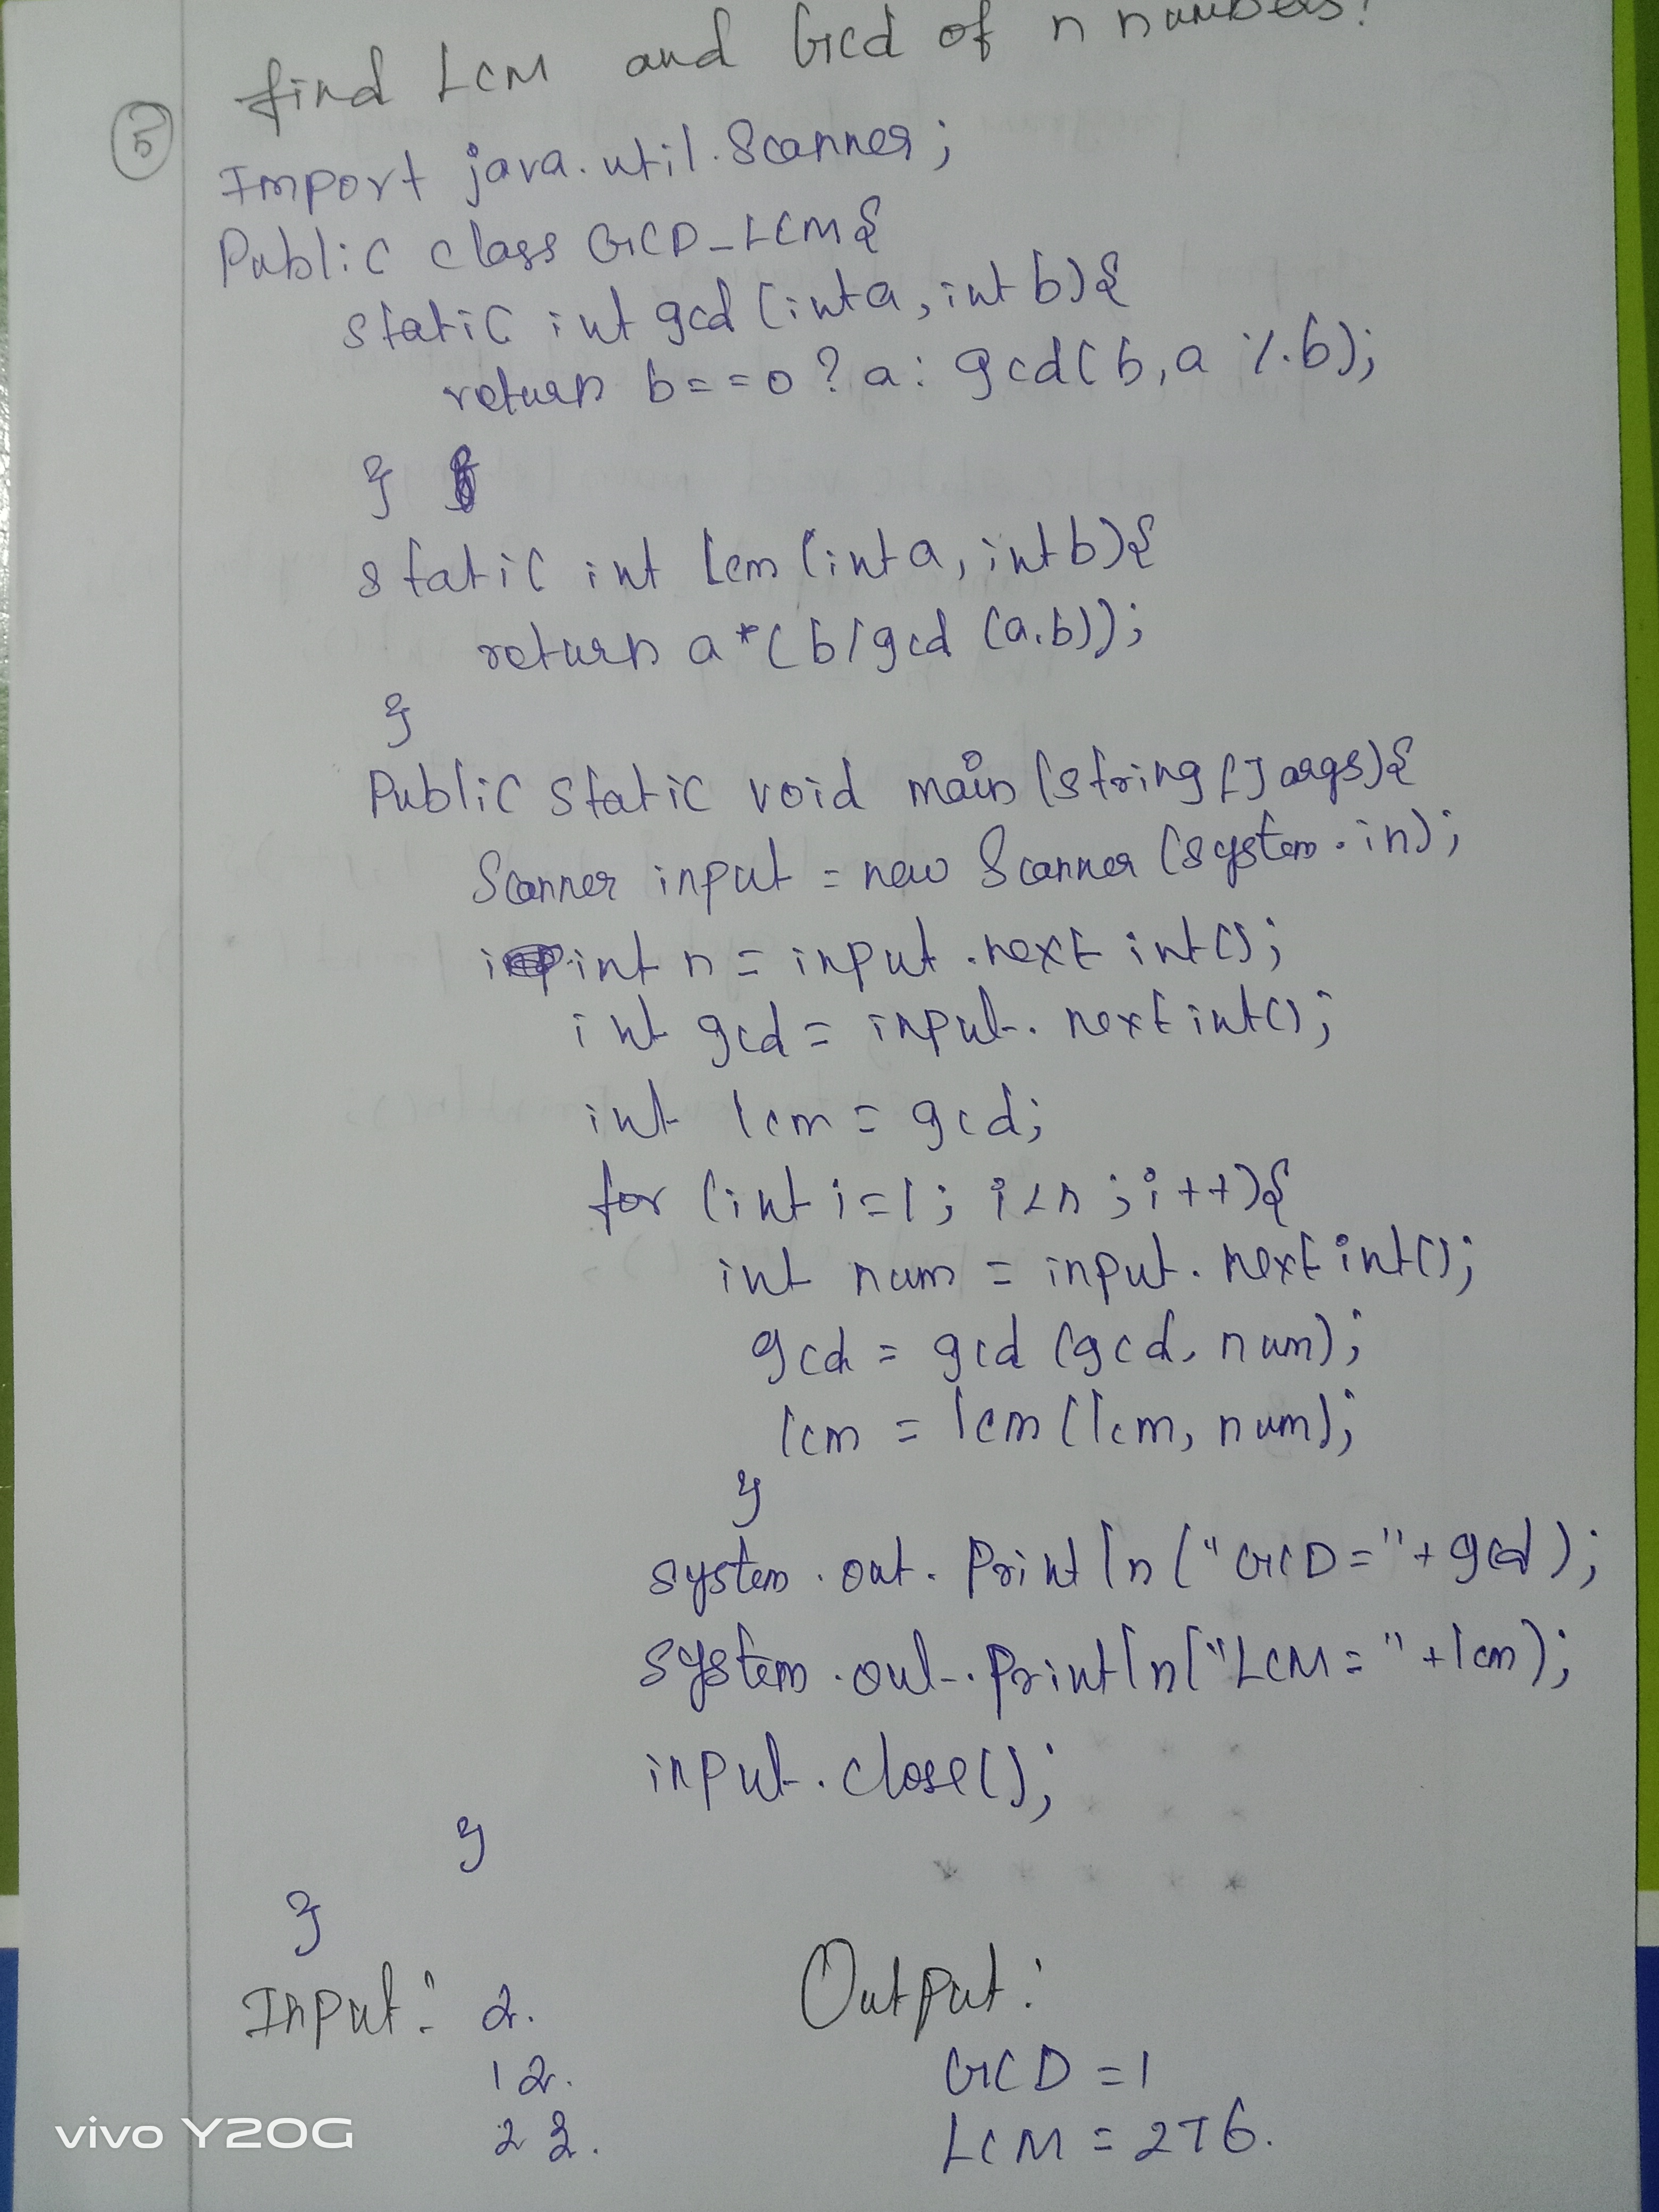 find LCM and Gcd of n numbers!
5
Import java.util.Scanner;
Public class GCD_LCM{
static int gcd (int a, int b){
return b==0 ? a : gcd(b, a %b);
}
static int lcm (int a, int b){
return a*(b/gcd (a.b));
}
Public static void main (string [] args){
Scanner input = new Scanner (system.in);
int n = input.next int();
int gcd = input.next int();
int lcm = gcd;
for (int i=1; i<n ; i++){
int num = input.next int();
gcd = gcd (gcd, num);
lcm = lcm (lcm, num);
}
system.out.Println ("GCD="+gcd);
system.out.println("LCM="+lcm);
input.close();
}
}
Input: 2. Output:
12. GCD =1
23. LCM = 276.
vivo Y20G